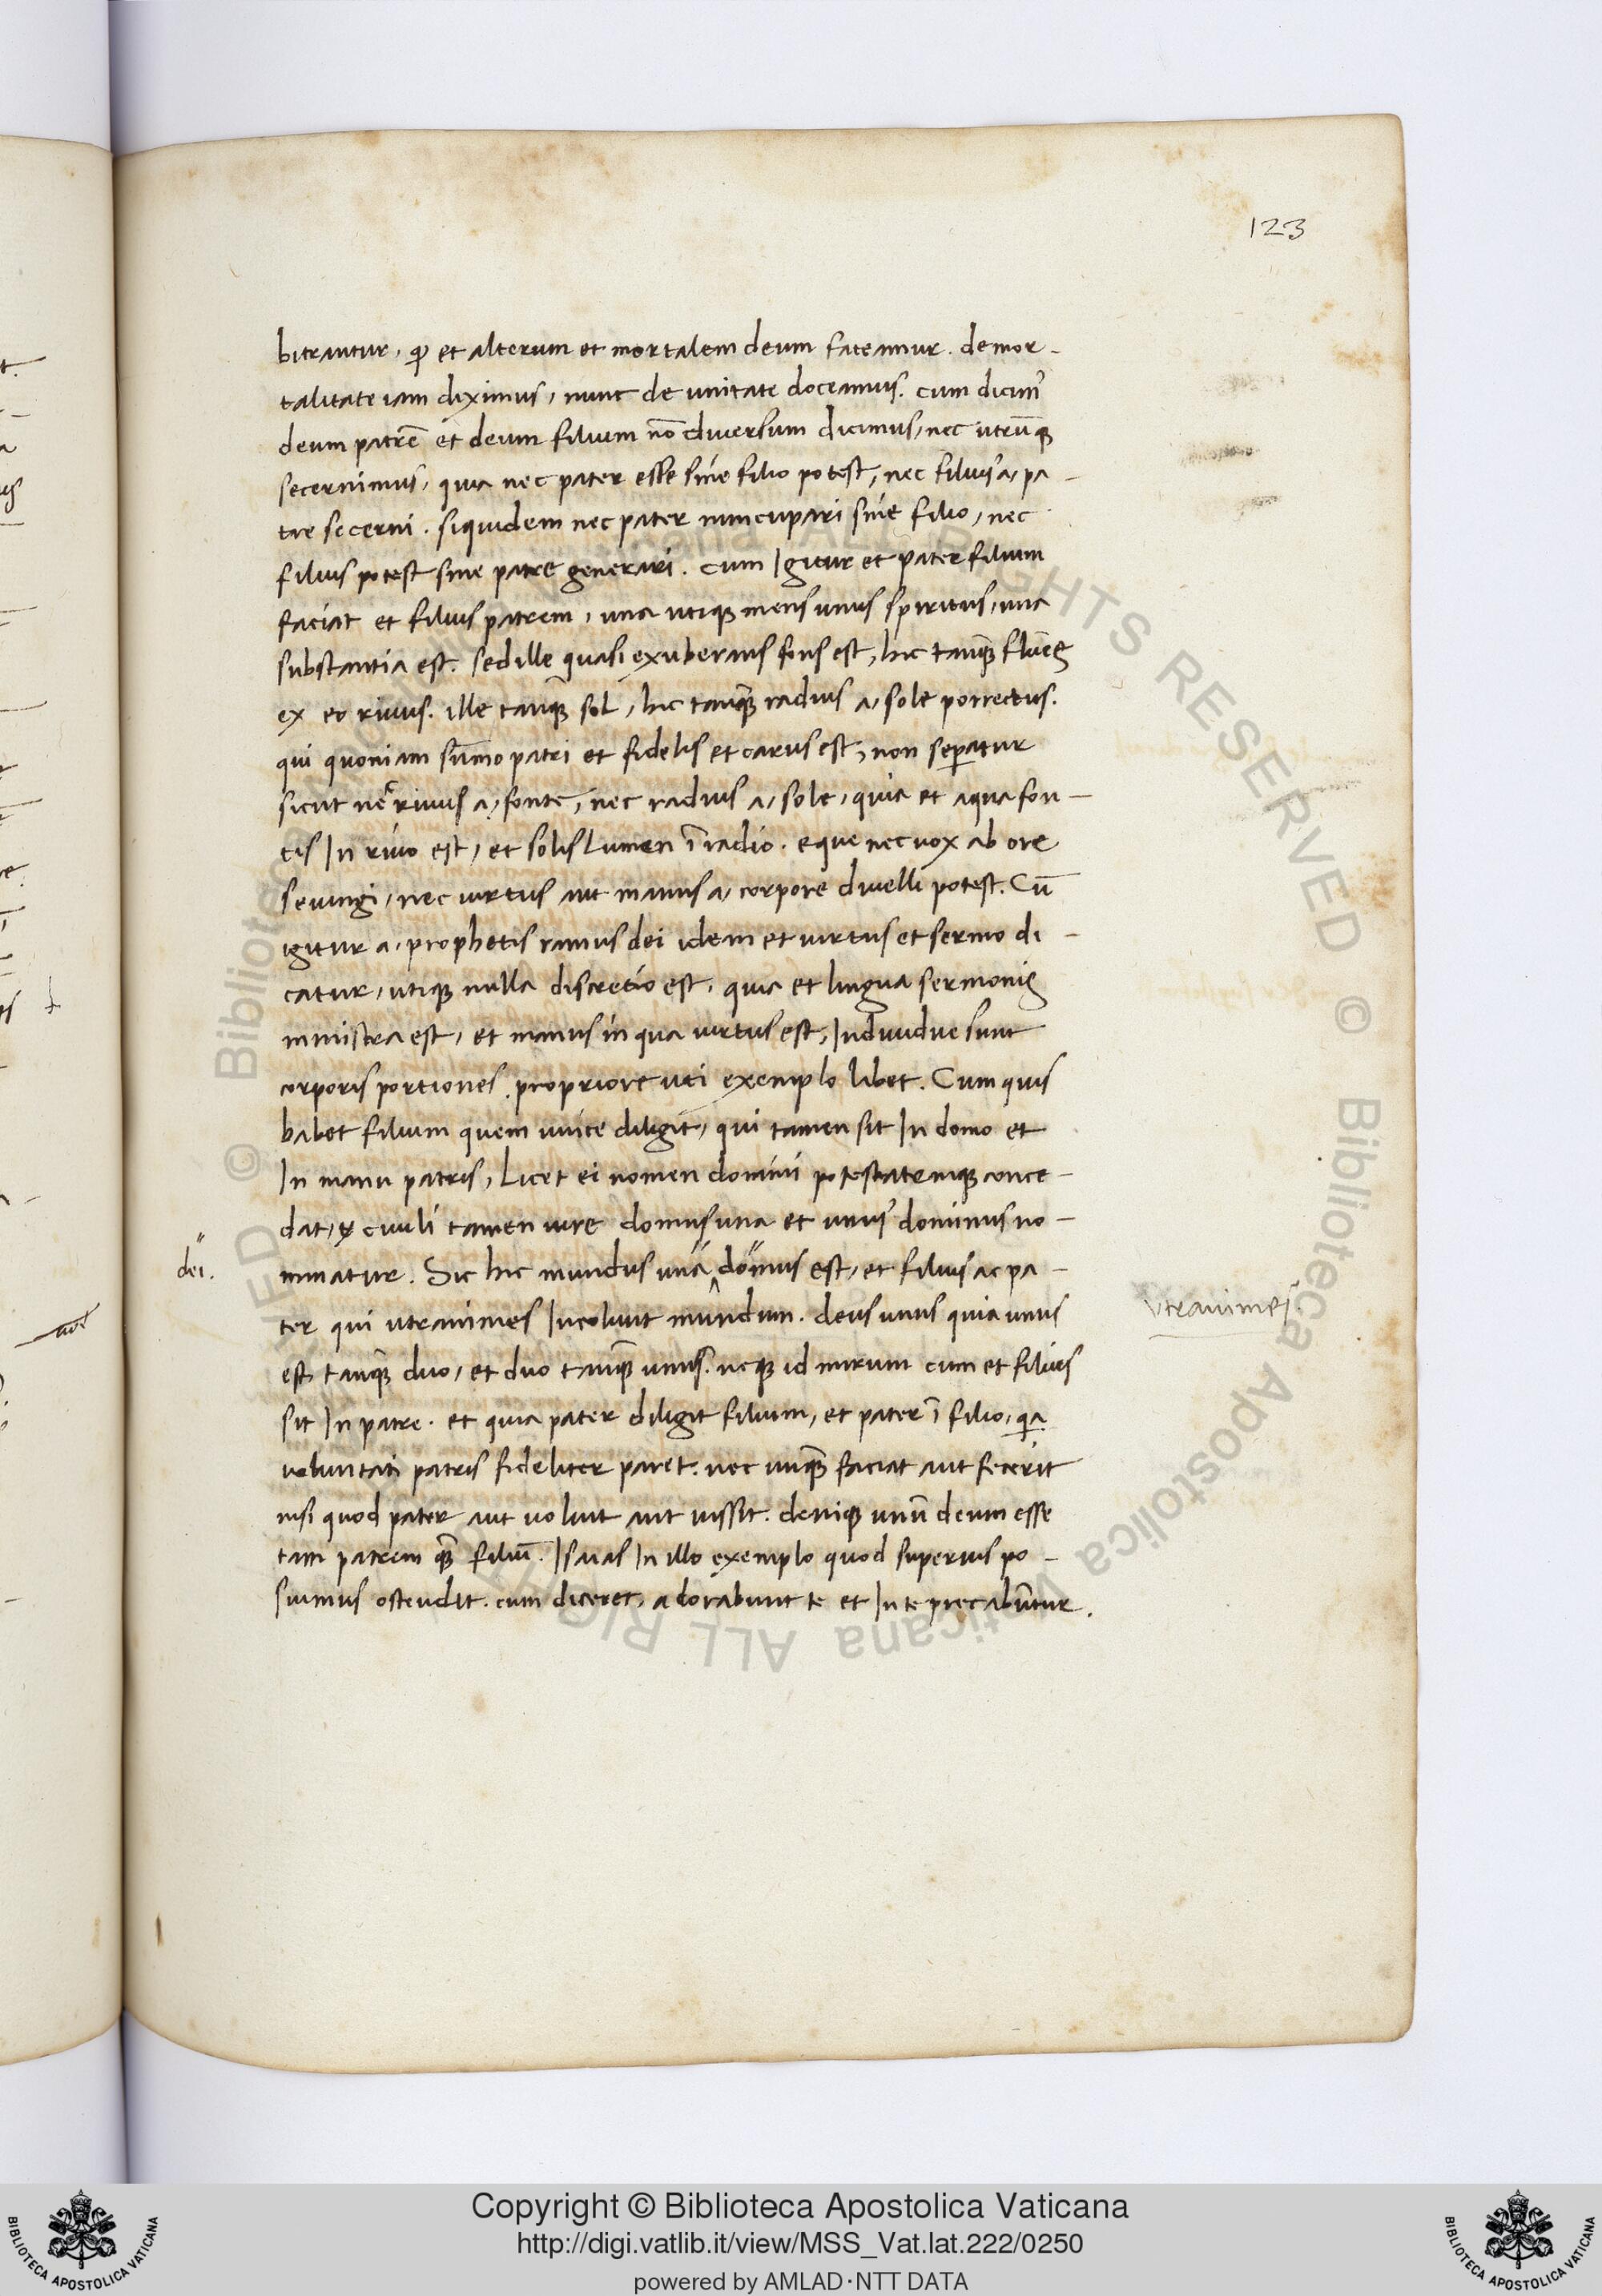 123
bitrantur, ꝙ et alterum et mortalem deum fateamur. de mor-
talitate iam diximus, nunc de unitate doceamus. cum dicim᾿
deum patrē et deum filium nō diuersum dicimus, nec utrūqꝫ
secernimus, quia nec pater esse sine filio potest, nec filius a, pa-
tre secerni. siquidem nec pater nuncupari sine filio, nec
filius potest sine patre generari. cum Igitur et pater filium
faciat et filius patrem, una utiqꝫ mens unus spiritus, una
substantia est. sed ille quasi exuberans fons est, hic tanqꝫ̄ fluēs
ex eo riuus. ille tanqꝫ̄ sol, hic tanqꝫ̄ radius a, sole porrectus.
qui quoniam sūmo patri et fidelis et carus est, non seꝑatur
sicut nec riuus a, fonte, nec radius a, sole, quia et aqua fon-
tis In riuo est, et solis Lumen ī radio. eque nec uox ab ore
seiungi, nec uirtus aut manus a, corpore diuelli potest. Cū
igitur a, prophetis manus dei idem et uirtus et sermo di-
catur, utiqꝫ nulla discretio est, quia et lingua sermonis
ministra est, et manus in qua uirtus est, Indiuidue sunt
corporis portiones. propriore uti exemplo libet. Cum quis
habet filium quem unice diligit, qui tamen sit In domo et
In manu patris, Licet ei nomen domini potestatemqꝫ conce-
dat, ciuili tamen iure domus una et unus dominus no-
dei.
minatur. Sic hic mundus una domus est, et filius ac pa-
ter qui utranimes Incolunt mundum. deus unus quia unus
Vtranimes.
est tanqꝫ̄ duo, et duo tanqꝫ̄ unus. neqꝫ id mirum cum et filius
sit In patre. et quia pater diligit filium, et pater ī filio, qa
uoluntati patris fideliter paret. nec unqꝫ̄ faciat aut fecerit
nisi quod pater aut uoluit aut iussit. deniqꝫ unū deum esse
tam patrem qꝫ̄ filiū. Isaias In illo exemplo quod superius po-
suimus ostendit. cum diceret, adorabunt te et In te precabūtur.
Copyright © Biblioteca Apostolica Vaticana
http://digi.vatlib.it/view/MSS_Vat.lat.222/0250
powered by AMLAD·NTT DATA